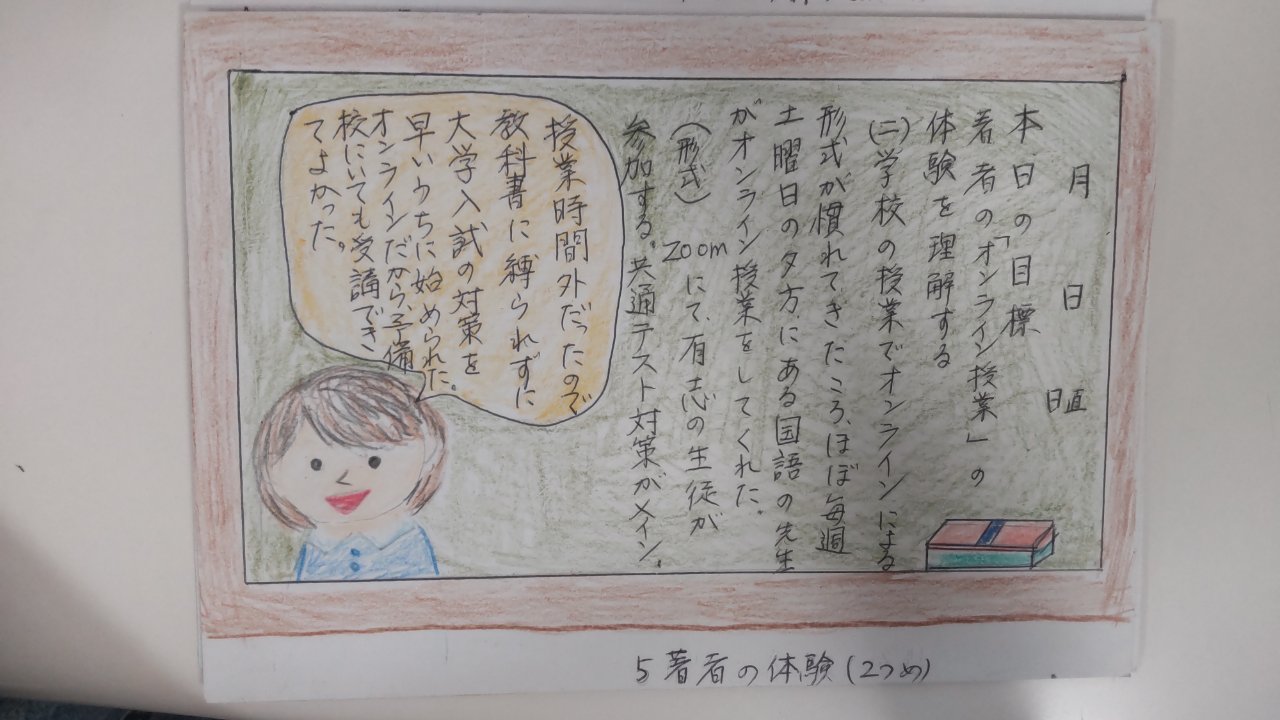 月 日 日直
本日の目標
著者の「オンライン授業」の
体験を理解する
(二)学校の授業でオンラインによる
形式が慣れてきたころ、ほぼ毎週
土曜日の夕方にある国語の先生
がオンライン授業をしてくれた。
(形式) zoomにて、有志の生徒が
参加する。共通テスト対策がメイン。
授業時間外だったので
教科書に縛られずに
大学入試の対策を
早いうちに始められた。
オンラインだから、予備
校にいても受講でき
てよかった。
5 著者の体験(2つめ)